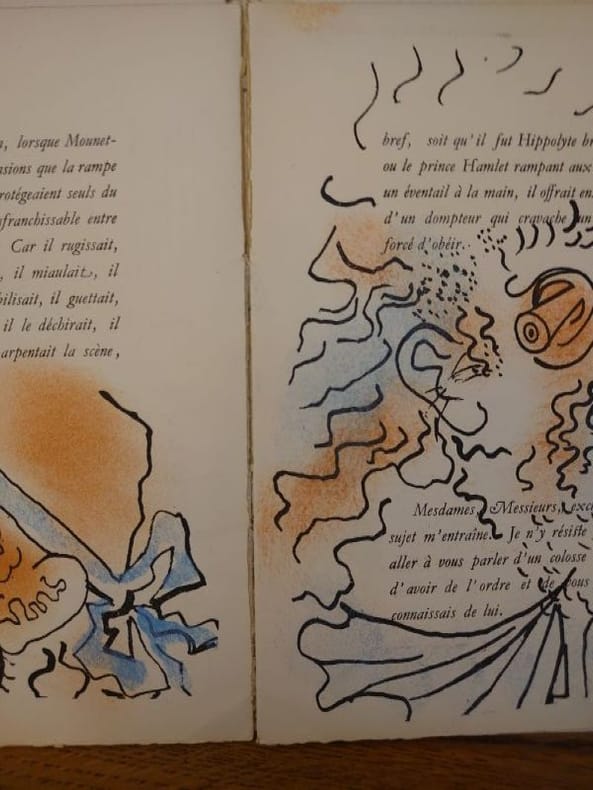 , lorsque Mounet-
nsions que la rampe
rotégeaient seuls du
nfranchissable entre
Car il rugissait,
, il miaulait, il
bilisait, il guettait,
il le déchirait, il
arpentait la scène,
bref, soit qu'il fut Hippolyte br
ou le prince Hamlet rampant aux
un éventail à la main, il offrait en
d'un dompteur qui cravache un
forcé d'obéir.
Mesdames, Messieurs, exc
sujet m'entraîne. Je n'y résiste
aller à vous parler d'un colosse
d'avoir de l'ordre et de vous
connaissais de lui.